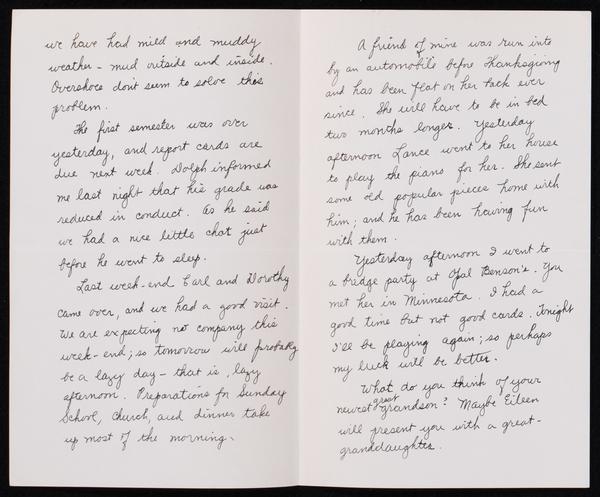 we have had mild and muddy
weather - mud outside and inside.
Overshoes don't seem to solve this
problem.
The first semester was over
yesterday, and report cards are
due next week. Dolph informed
me last night that his grade was
reduced in conduct. As he said
we had a nice little chat just
before he went to sleep.
Last week-end Carl and Dorothy
came over, and we had a good visit.
We are expecting no company this
week-end; so tomorrow will probably
be a lazy day - that is, lazy
afternoon. Preparations for Sunday
School, Church, and dinner take
up most of the morning.
A friend of mine was run into
by an automobile before Thanksgiving
and has been flat on her back ever
since. She will have to be in bed
two months longer. Yesterday
afternoon Lance went to her house
to play the piano for her. She sent
some old popular pieces home with
him; and he has been having fun
with them.
Yesterday afternoon I went to
a bridge party at Opal Benson's. You
met her in Minnesota. I had a
good time but not good cards. Tonight
I'll be playing again; so perhaps
my luck will be better.
What do you think of your
newest great grandson? Maybe Eileen
will present you with a great-
granddaughter.